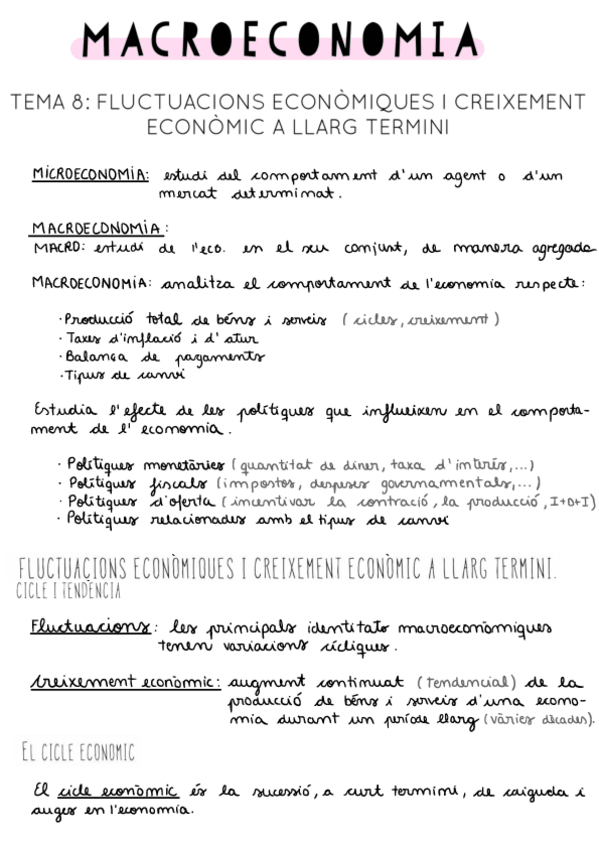 MACROECONOMIA
TEMA 8: FLUCTUACIONS ECONÒMIQUES I CREIXEMENT
ECONÒMIC A LLARG TERMINI
MICROECONOMIA: estudi del comportament d'un agent o d'un
mercat determinat.
MACROECONOMIA:
MACRO: estudi de l'eco. en el seu conjunt, de manera agregada
MACROECONOMIA: analitza el comportament de l'economia respecte:
· Producció total de béns i serveis (cicles, creixement)
· Taxes d'inflació i d'atur
· Balança de pagaments
· Tipus de canvi
Estudia l'efecte de les polítiques que influeixen en el comporta-
ment de l'economia.
· Polítiques monetàries (quantitat de diner, taxa d'interès,...)
· Polítiques fiscals (impostos, despeses governamentals,...)
· Polítiques d'oferta (incentivar la contració, la producció, I+D+I)
· Polítiques relacionades amb el tipus de canvi
FLUCTUACIONS ECONÒMIQUES I CREIXEMENT ECONÒMIC A LLARG TERMINI.
CICLE I TENDÈNCIA
Fluctuacions: les principals identitats macroeconòmiques
tenen variacions cícliques.
Creixement econòmic: augment continuat (tendencial) de la
producció de béns i serveis d'una econo-
mia durant un període llarg (vàries dècades).
EL CICLE ECONÒMIC
El cicle econòmic és la sucessió, a curt termini, de caiguda i
auges en l'economia.